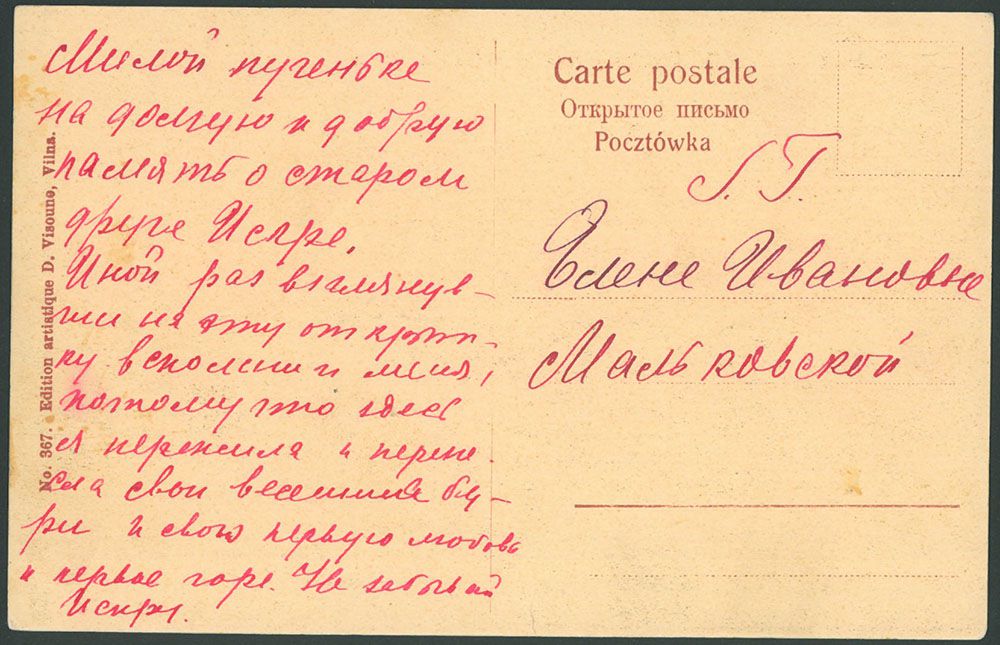 Милой пугеньке
на долгую и добрую
память о старом
друге Искре.
Иной раз взглянув-
ши на эту открыт-
ку вспомни и меня,
потому что здесь
я пережила и перене-
сла свои весенние бу-
ри и свою первую любовь
и первое горе. Не забывай
Искру.
No. 367. Edition artistique D. Visoune, Vilna.
Carte postale
Открытое письмо
Pocztówka
Елене Ивановне
Мальковской